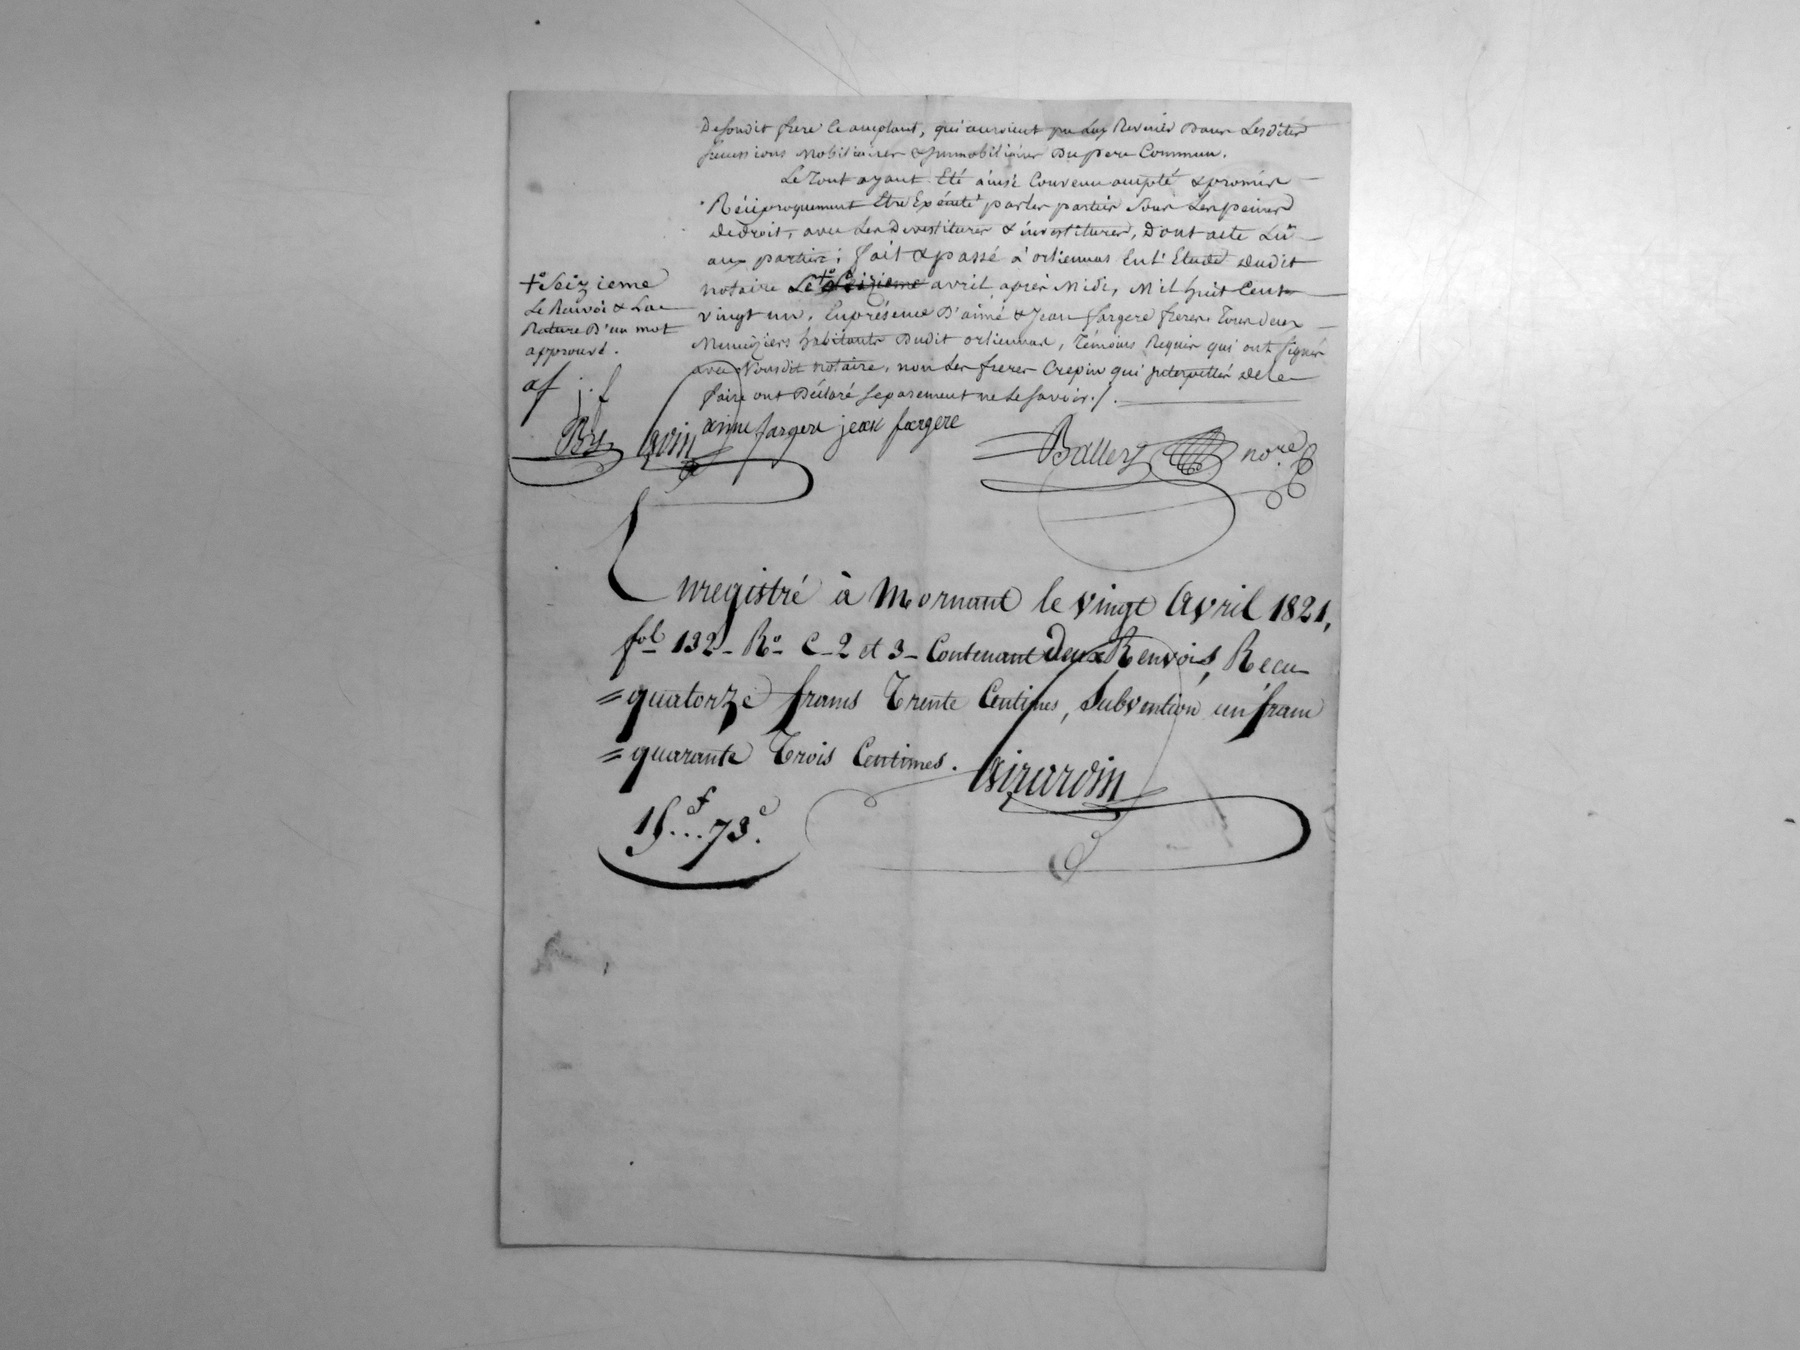 Desondit frere Ceamplant, qui auroient pu luy Revenir Dans Lesdites
successions Mobiliaires & Immobiliaires Du pere Commun.
Le Tout ayant Eté ainsi Convenu accepté & promis
Réciproquement Etre Exécuté par les parties sous Les peines
de droit, avec Les Devestitures & investitures, Dont acte Lû
aux parties; fait & passé à orliennas En l'Etude dudit
notaire Le +° avril après Midi, Mil huit Cent
vingt un, En présence D'aimé & Jean fargere freres Tous deux
Menuiziers habitants Dudit orliennas, Témoins Requis qui ont signé
avec Nousdit notaire, non Les freres Crepin qui interpellés de le
faire ont Déclaré séparement ne Le savoir./.
+° Seizieme
Le Renvoi & La
Rature D'un mot
approuvé.
af j.f
aime fargere jean fargere
Ballery nore
Enregistré à Mornant le vingt Avril 1821,
fol 132 - Ro - C - 2 et 3 - Contenant Deux Renvois, Recu
= quatorze francs Trente Centimes, Subvention un franc
= quarante Trois Centimes. Girardin
15f...73c.